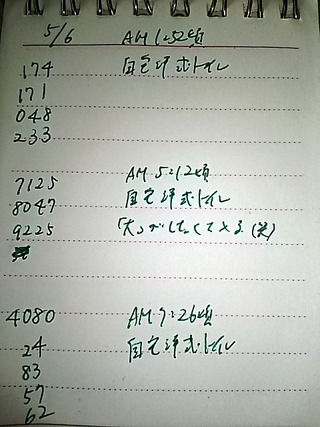 5/6 AM 1:52頃
174 自宅洋式トイレ
171
048
233
7125 AM 5:12頃
8047 自宅洋式トイレ
9225 「大」がしたくて
4080 AM 7:26頃
24 自宅洋式トイレ
83
57
62